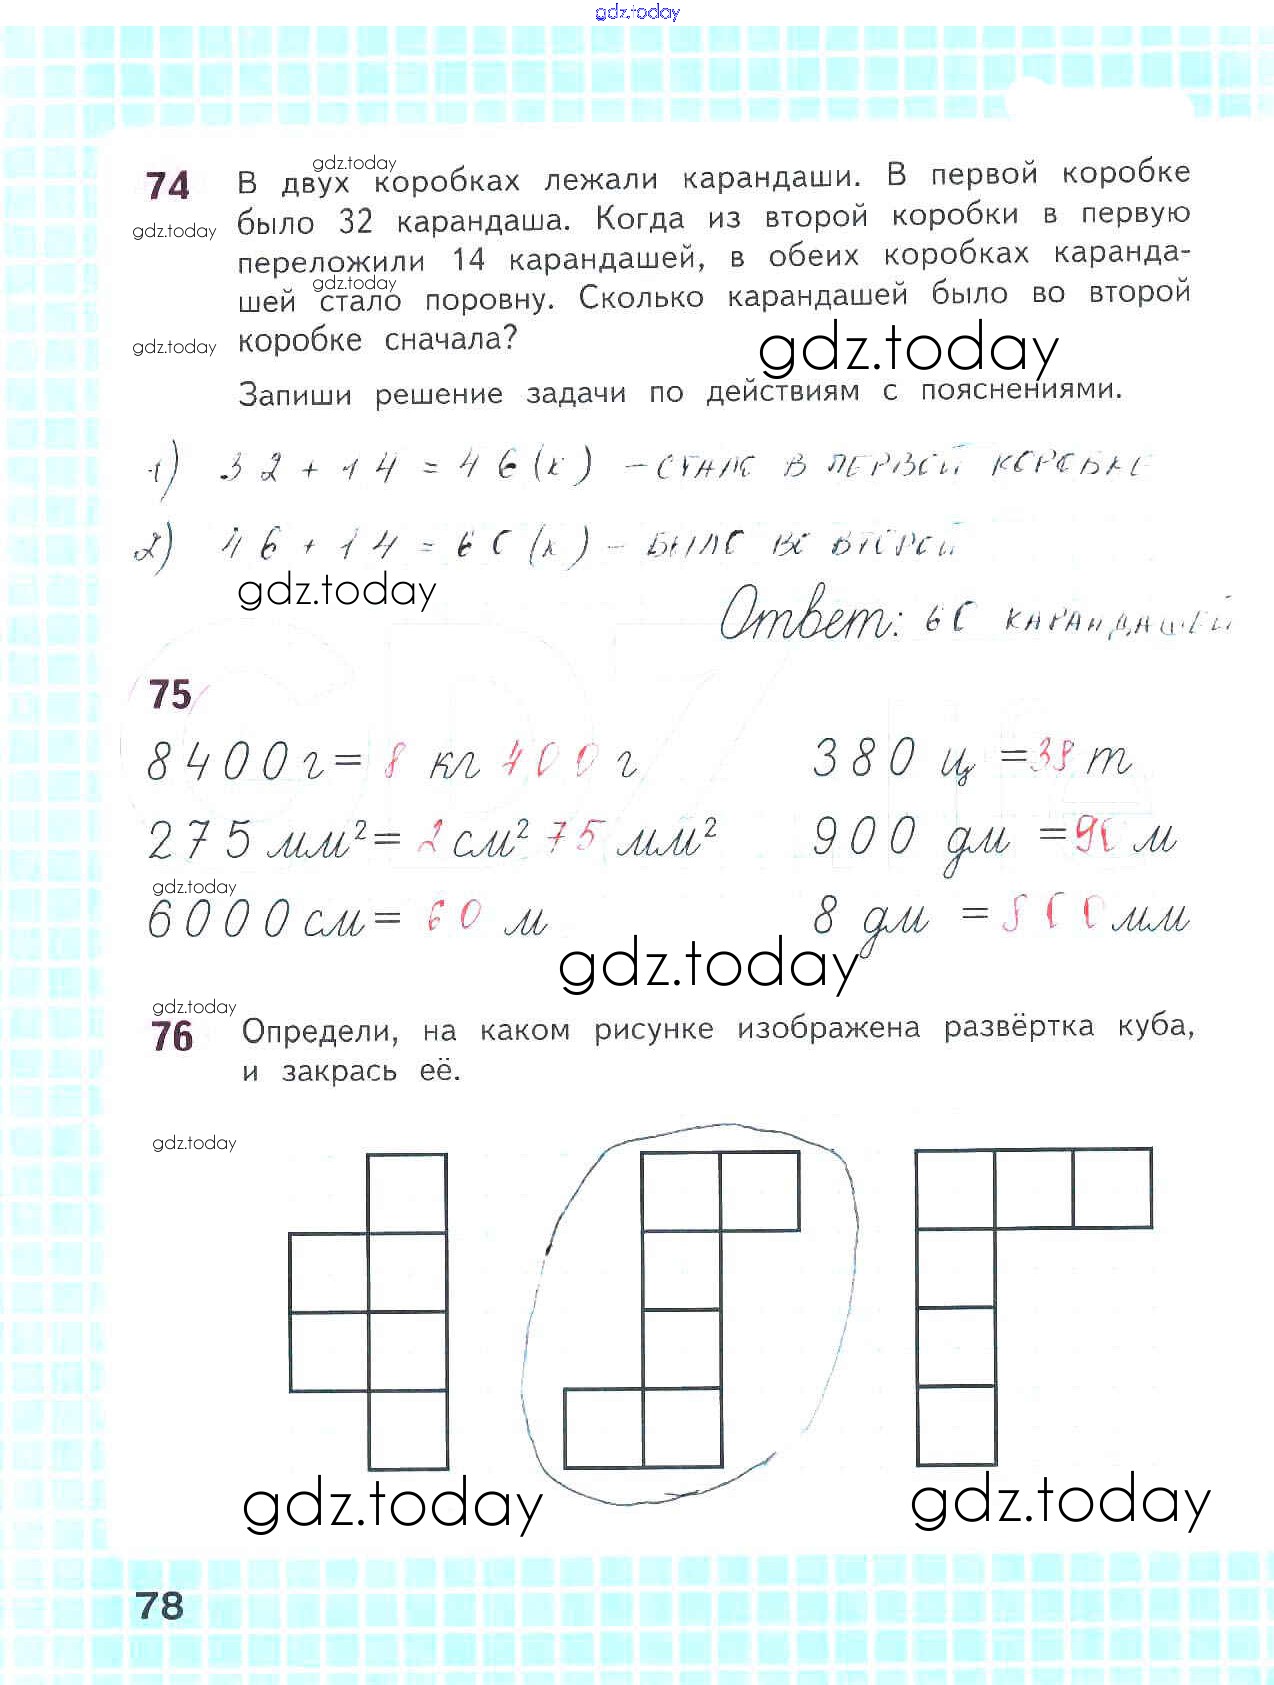 gdz.today
gdz.today
74 В двух коробках лежали карандаши. В первой коробке
gdz.today было 32 карандаша. Когда из второй коробки в первую
переложили 14 карандашей, в обеих коробках каранда-
gdz.today
шей стало поровну. Сколько карандашей было во второй
gdz.today коробке сначала?
gdz.today
Запиши решение задачи по действиям с пояснениями.
1) 32 + 14 = 46 (к) – стало в первой коробке
2) 46 + 14 = 60 (к) – было во второй
gdz.today
Ответ: 60 карандашей
75
8400 г = 8 кг 400 г 380 ц = 38 т
275 мм² = 2 см² 75 мм² 900 дм = 90 м
gdz.today
6000 см = 60 м 8 дм = 800 мм
gdz.today
gdz.today
76 Определи, на каком рисунке изображена развёртка куба,
и закрась её.
gdz.today
gdz.today gdz.today
78